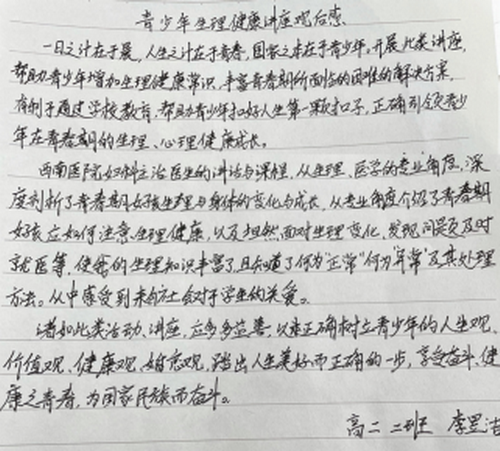 青少年生理健康讲座观后感
一日之计在于晨,人生之计在于青春,国家之本在于青少年。开展此类讲座,
帮助青少年增加生理健康常识,丰富青春期所面临的困难的解决方案,
有利于通过学校教育,帮助青少年扣好人生第一颗扣子,正确引领青少
年在青春期的生理、心理健康成长。
西南医院妇科主治医生的讲话与课程,从生理、医学的专业角度,深
度剖析了青春期女孩生理与身体的变化与成长,从专业角度介绍了青春期
女孩应如何注意生理健康,以及坦然面对生理变化、发现问题及时
就医等,使我的生理知识丰富了,且知道了何为“正常”何为“异常”及其处理
方法。从中感受到来自社会对于学生的关爱。
诸如此类活动、讲座,应多多益善,以正确树立青少年的人生观、
价值观、健康观、婚恋观,踏出人生美好而正确的一步,享受奋斗、健
康之青春,为国家民族而奋斗。
高二 二班 李